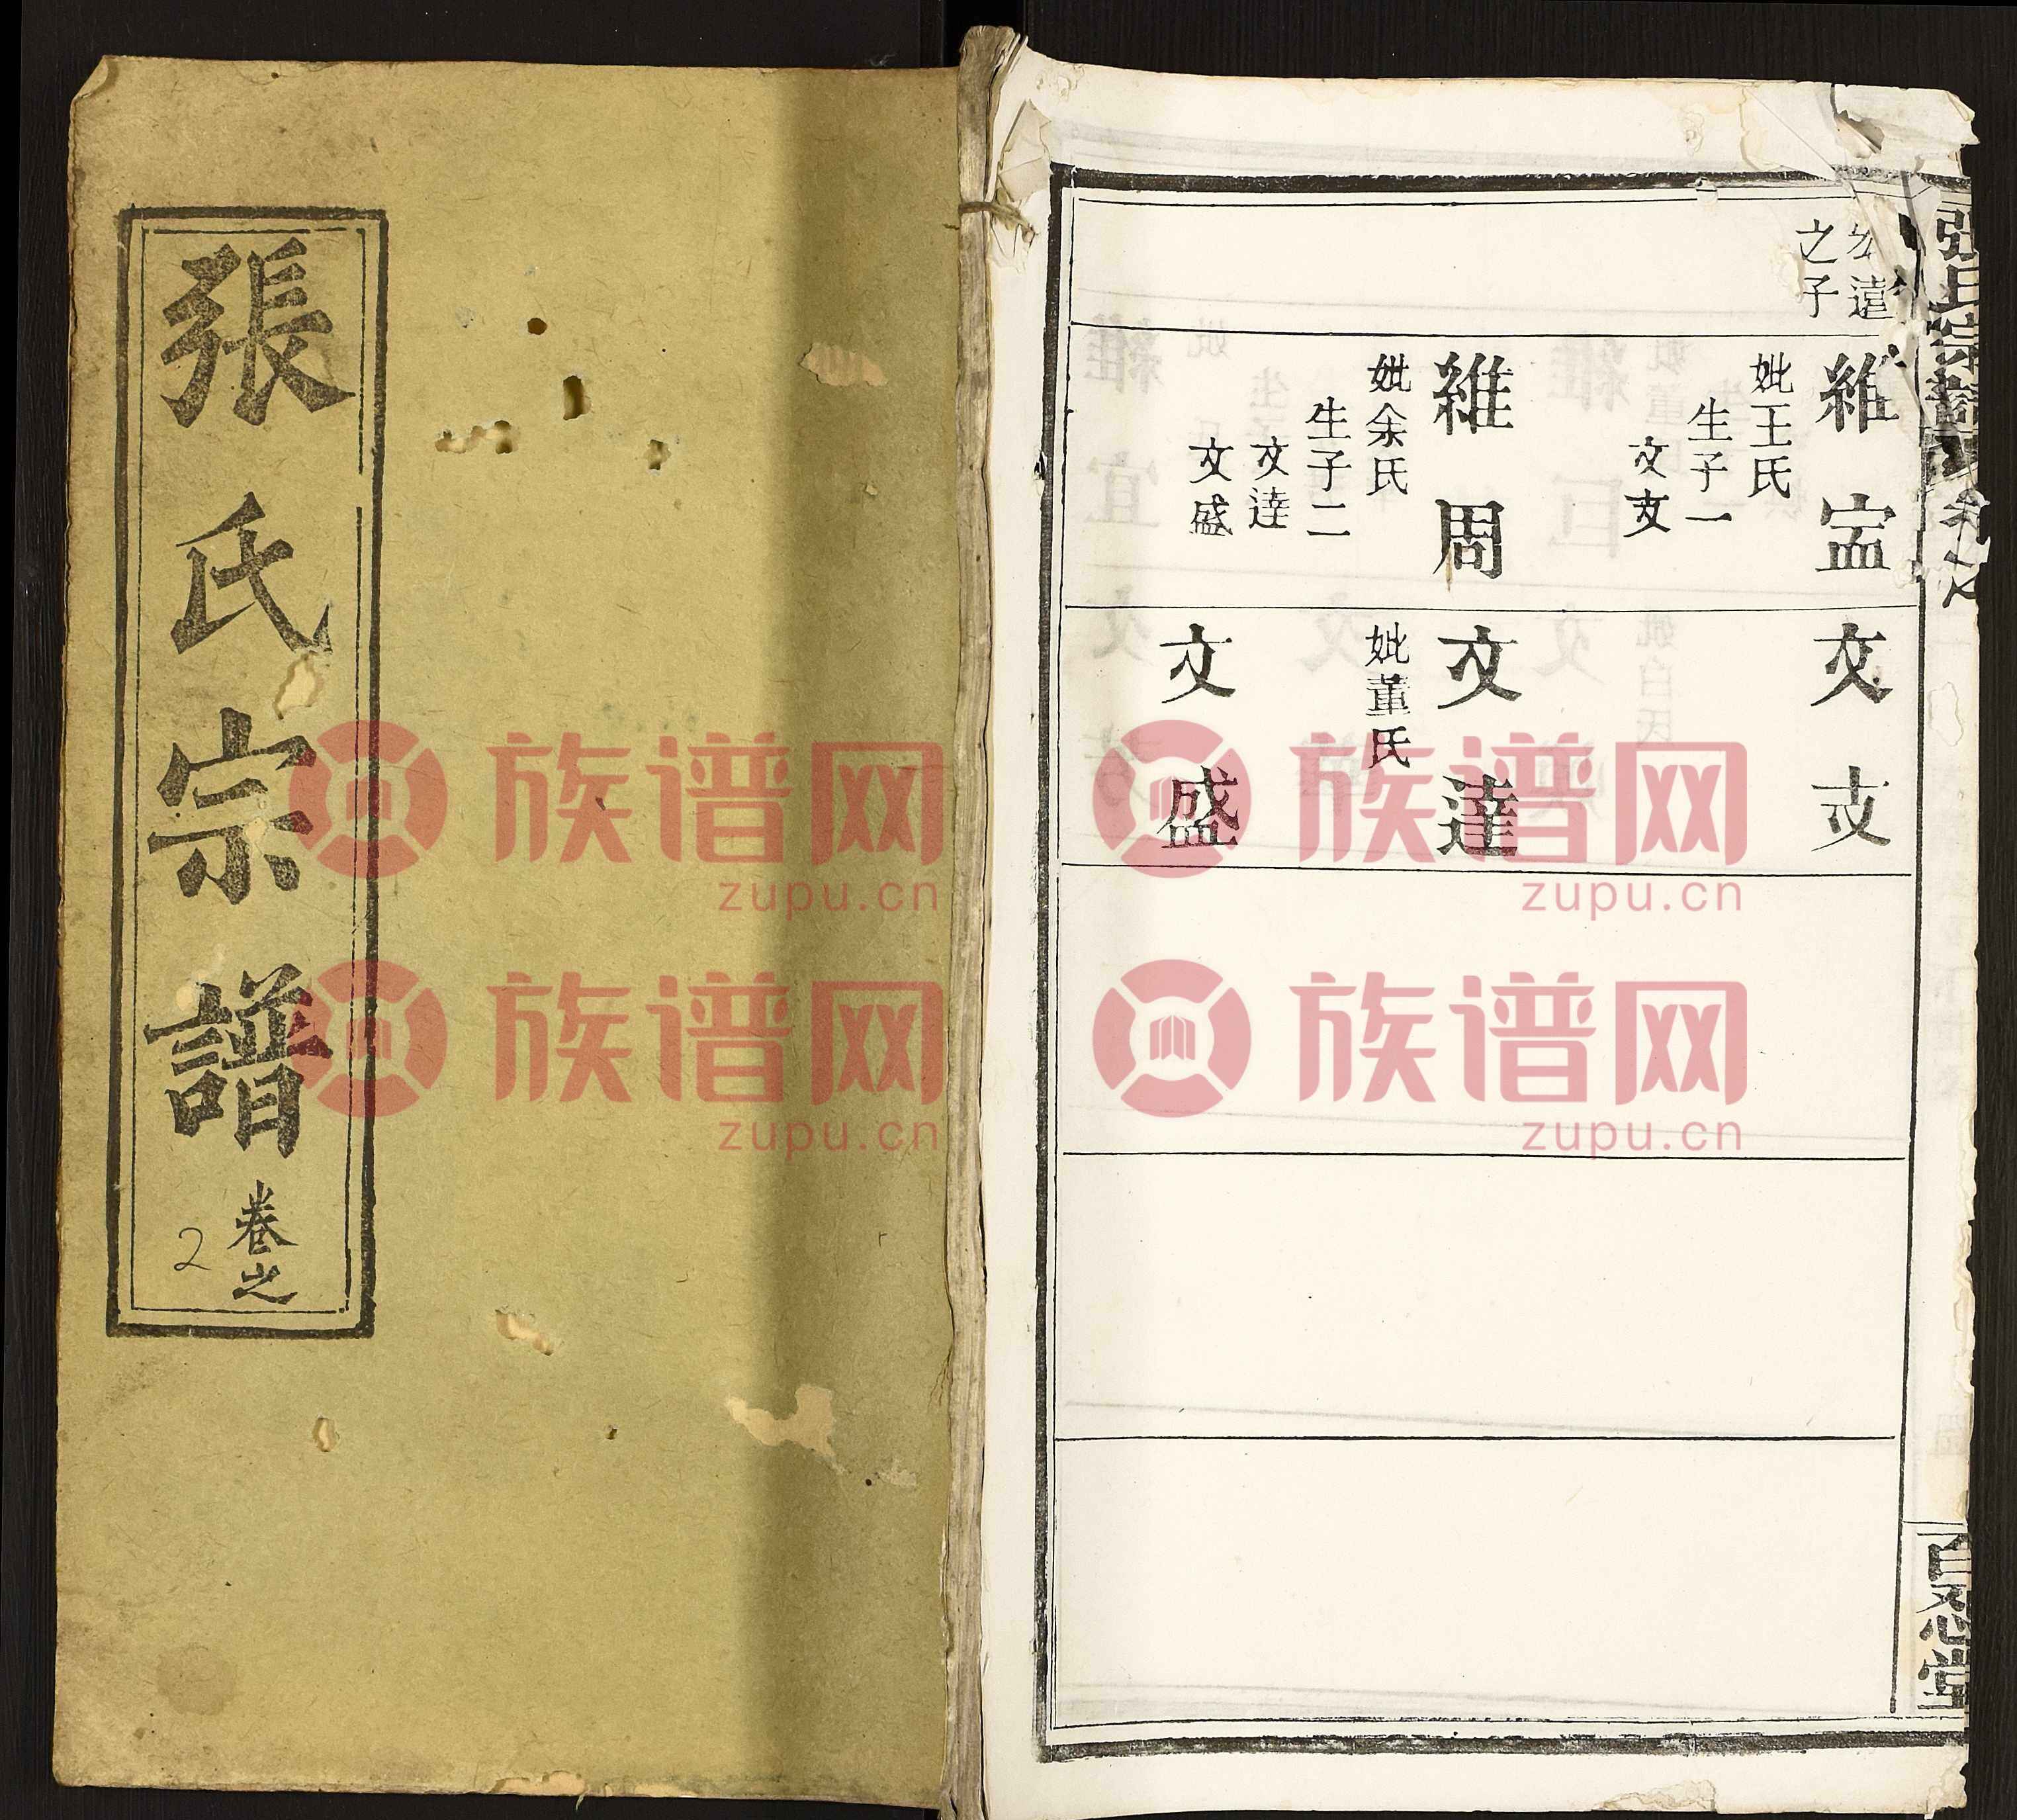 張氏宗譜
卷之
2
張氏宗譜
卷之
百忍堂
公遠
之子
維寍
妣王氏
生子一
文支
維周
妣余氏
生子二
文達
文盛
文支
文達
妣董氏
文盛
族谱网
zupu.cn
族谱网
zupu.cn
族谱网
zupu.cn
族谱网
zupu.cn